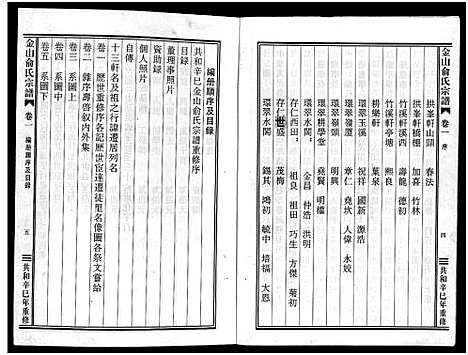 金山俞氏宗譜
卷一
序
四
共和辛巳年重修
拱峯軒山頭 春法
拱峯軒橋棚 加喜 竹林
竹溪軒溪西 壽龍 德初
竹溪軒亭塘 熙良
耕樂軒 葉泉
環翠玉溪 祝祥 國新 源浩
環翠嶺頭 章仁 堯坎 人偉 水姣
環翠廈頭 明興
環翠耕學堂 堯賢 明檔
環翠水閣 金昌 仲浩 洪明
存仁西田 祖亮 祖田 巧生 方傑 菊初
存仁世盛 茂梅
環翠水閣 錫其 鴻初 毓中 培楊 大恩
編册順序及目錄
共和辛巳金山俞氏宗譜重修序
目錄
董理事照片
個人照片
自傳
十三軒名及祖之行諱遷居列名
卷一 歷世重修序各記歷世宦達遷徙里名像圖各祭文嘗給
卷二 雜序壽啓叙内外集
卷三 系圖上
卷四 系圖中
卷五 系圖下
金山俞氏宗譜
卷一
編册順序及目錄
五
共和辛巳年重修